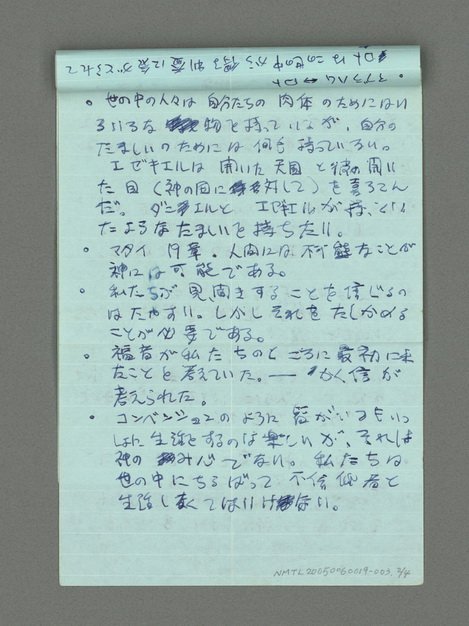 ・アブラハム ロト
ロトはこの世の中から
・世の中の人々は自分たちの肉体のためにはい
ろいろな物を持っているが、自分の
たましいのためには何も持っていない。
エゼキエルは開いた天国と彼の開い
た目(神の国に対して)を喜ろこん
だ。ダニエルとエゼキエルが持ってい
たようなたましいを持ちたい。
・マタイ19章。人間には不可能なことが
神には可能である。
・私たちが見聞きすることを信じるの
はたやすい。しかしそれをたしかめる
ことが必要である。
・福音が私たちのところに最初に来
たことを考えていた。── かく信が
考えられた。
・コンベンションのように皆がいつもいっ
しょに生活をするのは楽しいが、それは
神のみ心でない。私たちは
世の中にちらばって不信仰者と
生活しなくてはいけない。
NMTL20050060019-003, 2/4